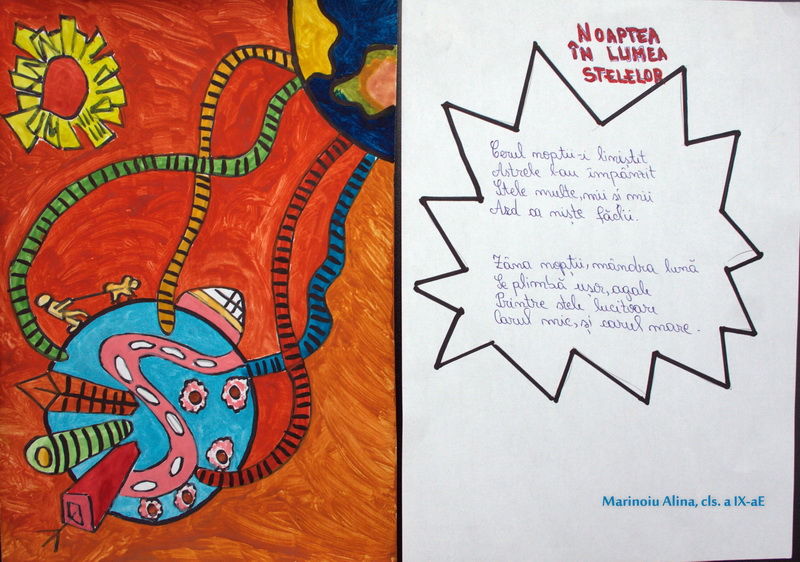 NOAPTEA
ÎN LUMEA
STELELOR
Cerul nopții-i liniștit
Astrele l-au împânzit
Stele multe, mii și mii
Ard ca niște făclii.
Zâna nopții, mândra lună
Se plimbă ușor, agale
Printre stele lucitoare
Carul mic, și carul mare.
Marinoiu Alina, cls. a IX-aE